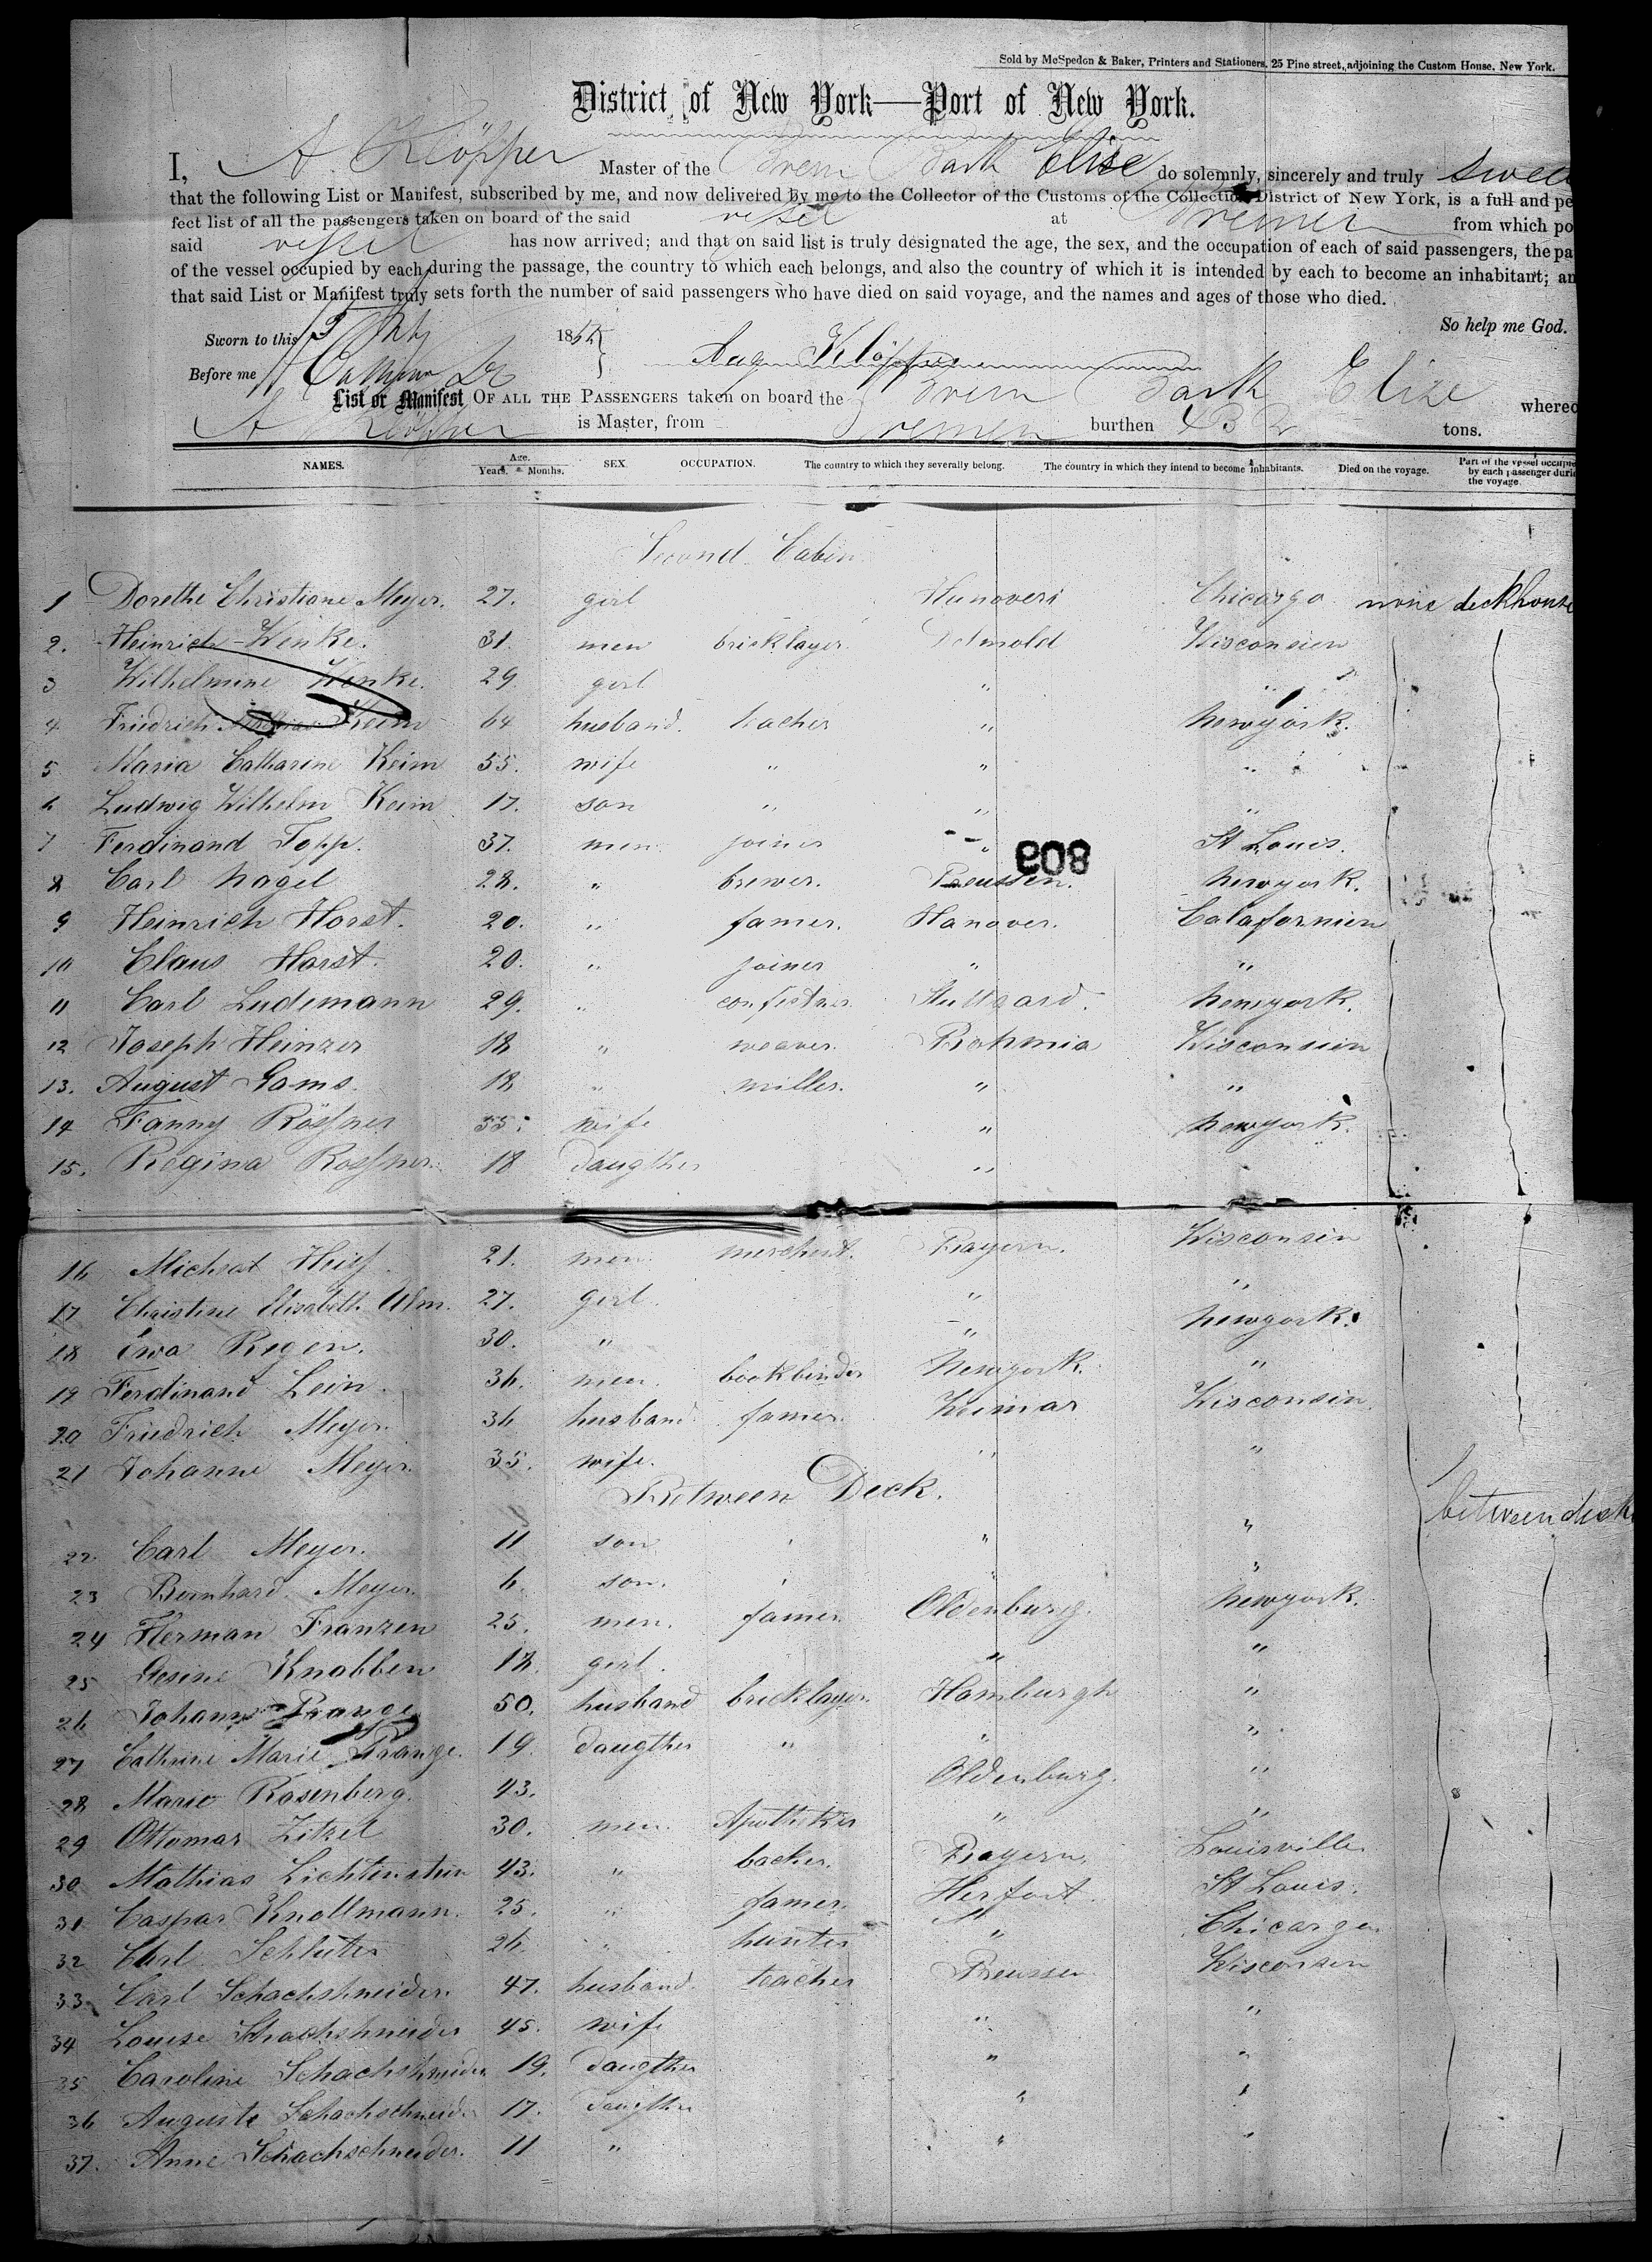 Sold by McSpedon & Baker, Printers and Stationers, 25 Pine street, adjoining the Custom House, New York.
District of New York—Port of New York.
I, A. Klöpper Master of the Brem Bark Elise do solemnly, sincerely and truly swear
that the following List or Manifest, subscribed by me, and now delivered by me to the Collector of the Customs of the Collection District of New York, is a full and pe
fect list of all the passengers taken on board of the said vessel at Bremen from which po
said vessel has now arrived; and that on said list is truly designated the age, the sex, and the occupation of each of said passengers, the pa
of the vessel occupied by each during the passage, the country to which each belongs, and also the country of which it is intended by each to become an inhabitant; an
that said List or Manifest truly sets forth the number of said passengers who have died on said voyage, and the names and ages of those who died.
So help me God.
Sworn to this 15 185
Before me Aug Klöpper
List or Manifest OF ALL THE PASSENGERS taken on board the Brem Bark Elise whereo
A Klöpper is Master, from Bremen burthen 432 tons.
NAMES. Age. Years. Months. SEX. OCCUPATION. The country to which they severally belong. The country in which they intend to become inhabitants. Died on the voyage. Part of the vessel occupie by each passenger duri the voyage.
Second Cabin
1 Dorethe Christiane Meyer. 27. girl Hanover Chicargo none deckhouse
2. Heinrich Winke. 31. men bricklayer. Detmold Wisconsien
3 Wilhelmine Winke. 29. girl " "
4. Friedrich Keim 64 husband. teacher " Newyork.
5 Maria Catharine Keim 55. wife " " "
6 Ludwig Wilhelm Keim 17. son " " "
7 Ferdinand Topp. 37. men joiner " St Louis.
808
8 Carl Nagel 28. " brewer. Preussen. Newyork.
9 Heinrich Horst. 20. " famer. Hanover. Calafornien
10 Claus Horst. 20. " joiner " "
11 Carl Ludemann 29. " Stuttgard. Newyork.
12 Joseph Heinzer 18 " weaver. Bohmia Wisconsien
13. August Gams. 18 " miller. " "
14 Fanny Rössner 55. wife " Newyork.
15. Regina Rossner. 18 daugther "
16 Micheal Heiss 21. men merchent. Bayern. Wisconsin
17 Christine Elisabeth Ulm. 27. girl " "
18 Ewa Regen. 30. " " Newyork.
19 Ferdinand Lein. 36. men. bookbinder Newyork. "
20 Friedrich Meyer. 36 husband famer. Weimar Wisconsin.
21 Johanne Meyer. 35. wife. " "
Between Deck.
between deck
22. Carl Meyer. 11 son " "
23 Bernhard Meyer. 6. son. " "
24 Herman Franzen 25. men. famer. Oldenburg. Newyork.
25 Gesine Knobben 18. girl. " "
26 Johann Prange 50. husband bricklayer. Hamburgh "
27 Cathrine Marie Prange. 19. daugther " " "
28 Marie Rosenberg. 43. Oldenburg. "
29 Ottomar Zitzel 30. men. Apotheker " "
30 Mathias Lichtenstein 43. " backer. Bayern Louisville
31 Caspar Knollmann. 25. " famer. Herfort. St Louis.
32 Carl Schluter 26. " hunter " Chicargo
33. Carl Schachshneider. 47. husband. teacher Preussen Wisconsin
34 Louise Schachshneider 45. wife " "
35 Caroline Schachshneider 19. daugther " "
36 Auguste Schachschneider 17. daugther " "
37. Anne Schachschneider. 11 " " "